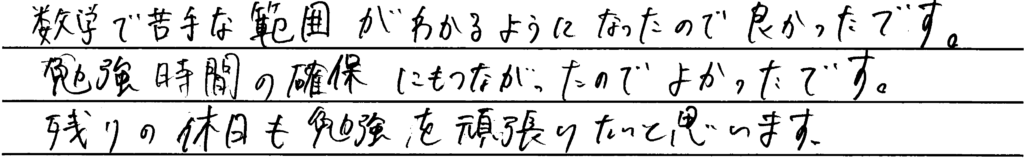 数学で苦手な範囲がわかるようになったので良かったです。
勉強時間の確保にもつながったのでよかったです。
残りの休日も勉強を頑張りたいと思います。